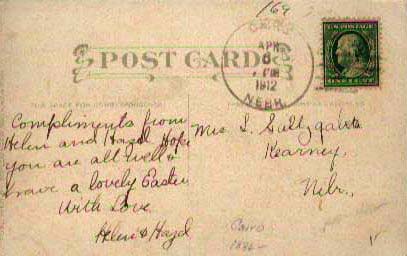 169
POST CARD
CAIRO
APR
6
PM
1912
NEBR.
U.S. POSTAGE
ONE CENT
THE SPACE FOR CORRESPONDENCE
Compliments from
Helen and Hazel Hope
you are all well &
have a lovely Easter
With Love
Helen & Hazel
Mrs L.
Kearney,
Nebr.,
Cairo
1886-